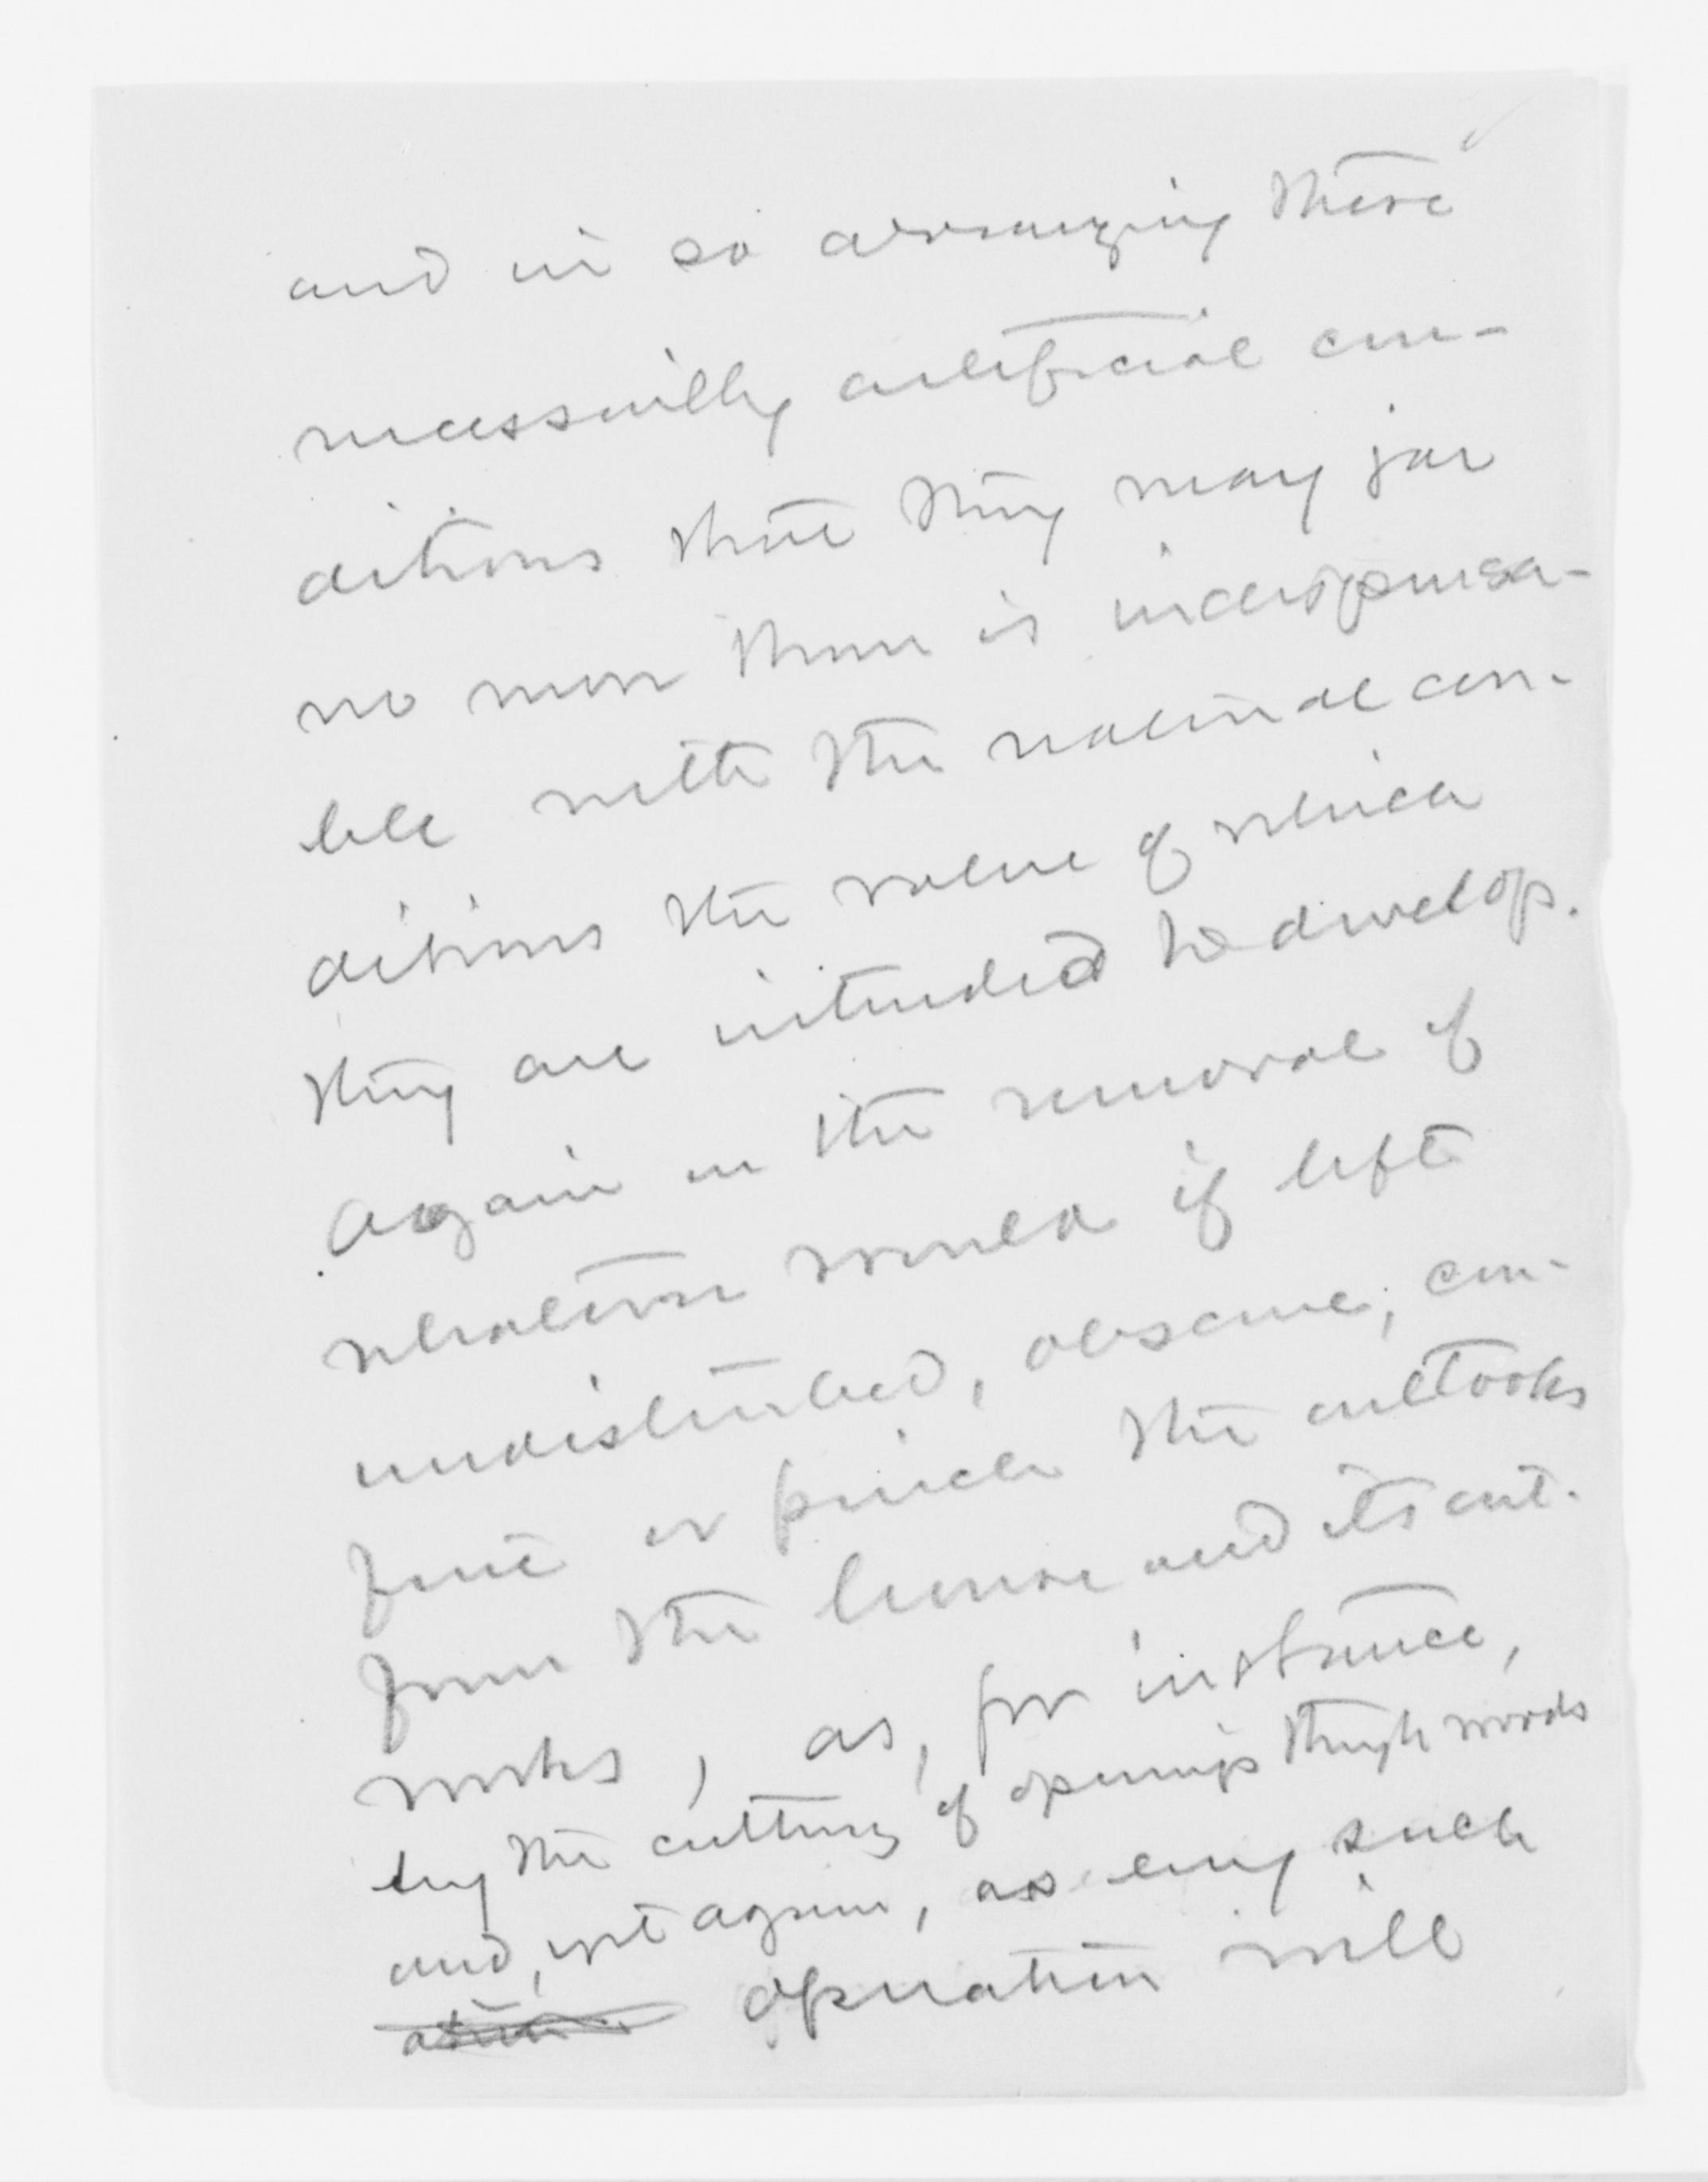 and in so arranging these
necessarily artificial con-
ditions that they may jar
no more than is indispensa-
ble with the natural con-
ditions the value of which
they are intended to develop.
Again in the removal of
whatever would if left
undisturbed, obscure, con-
fine or pinch the outlooks
from the house and its out-
works, as, for instance,
by the cutting of openings through woods
and, yet again, as every such
operation will